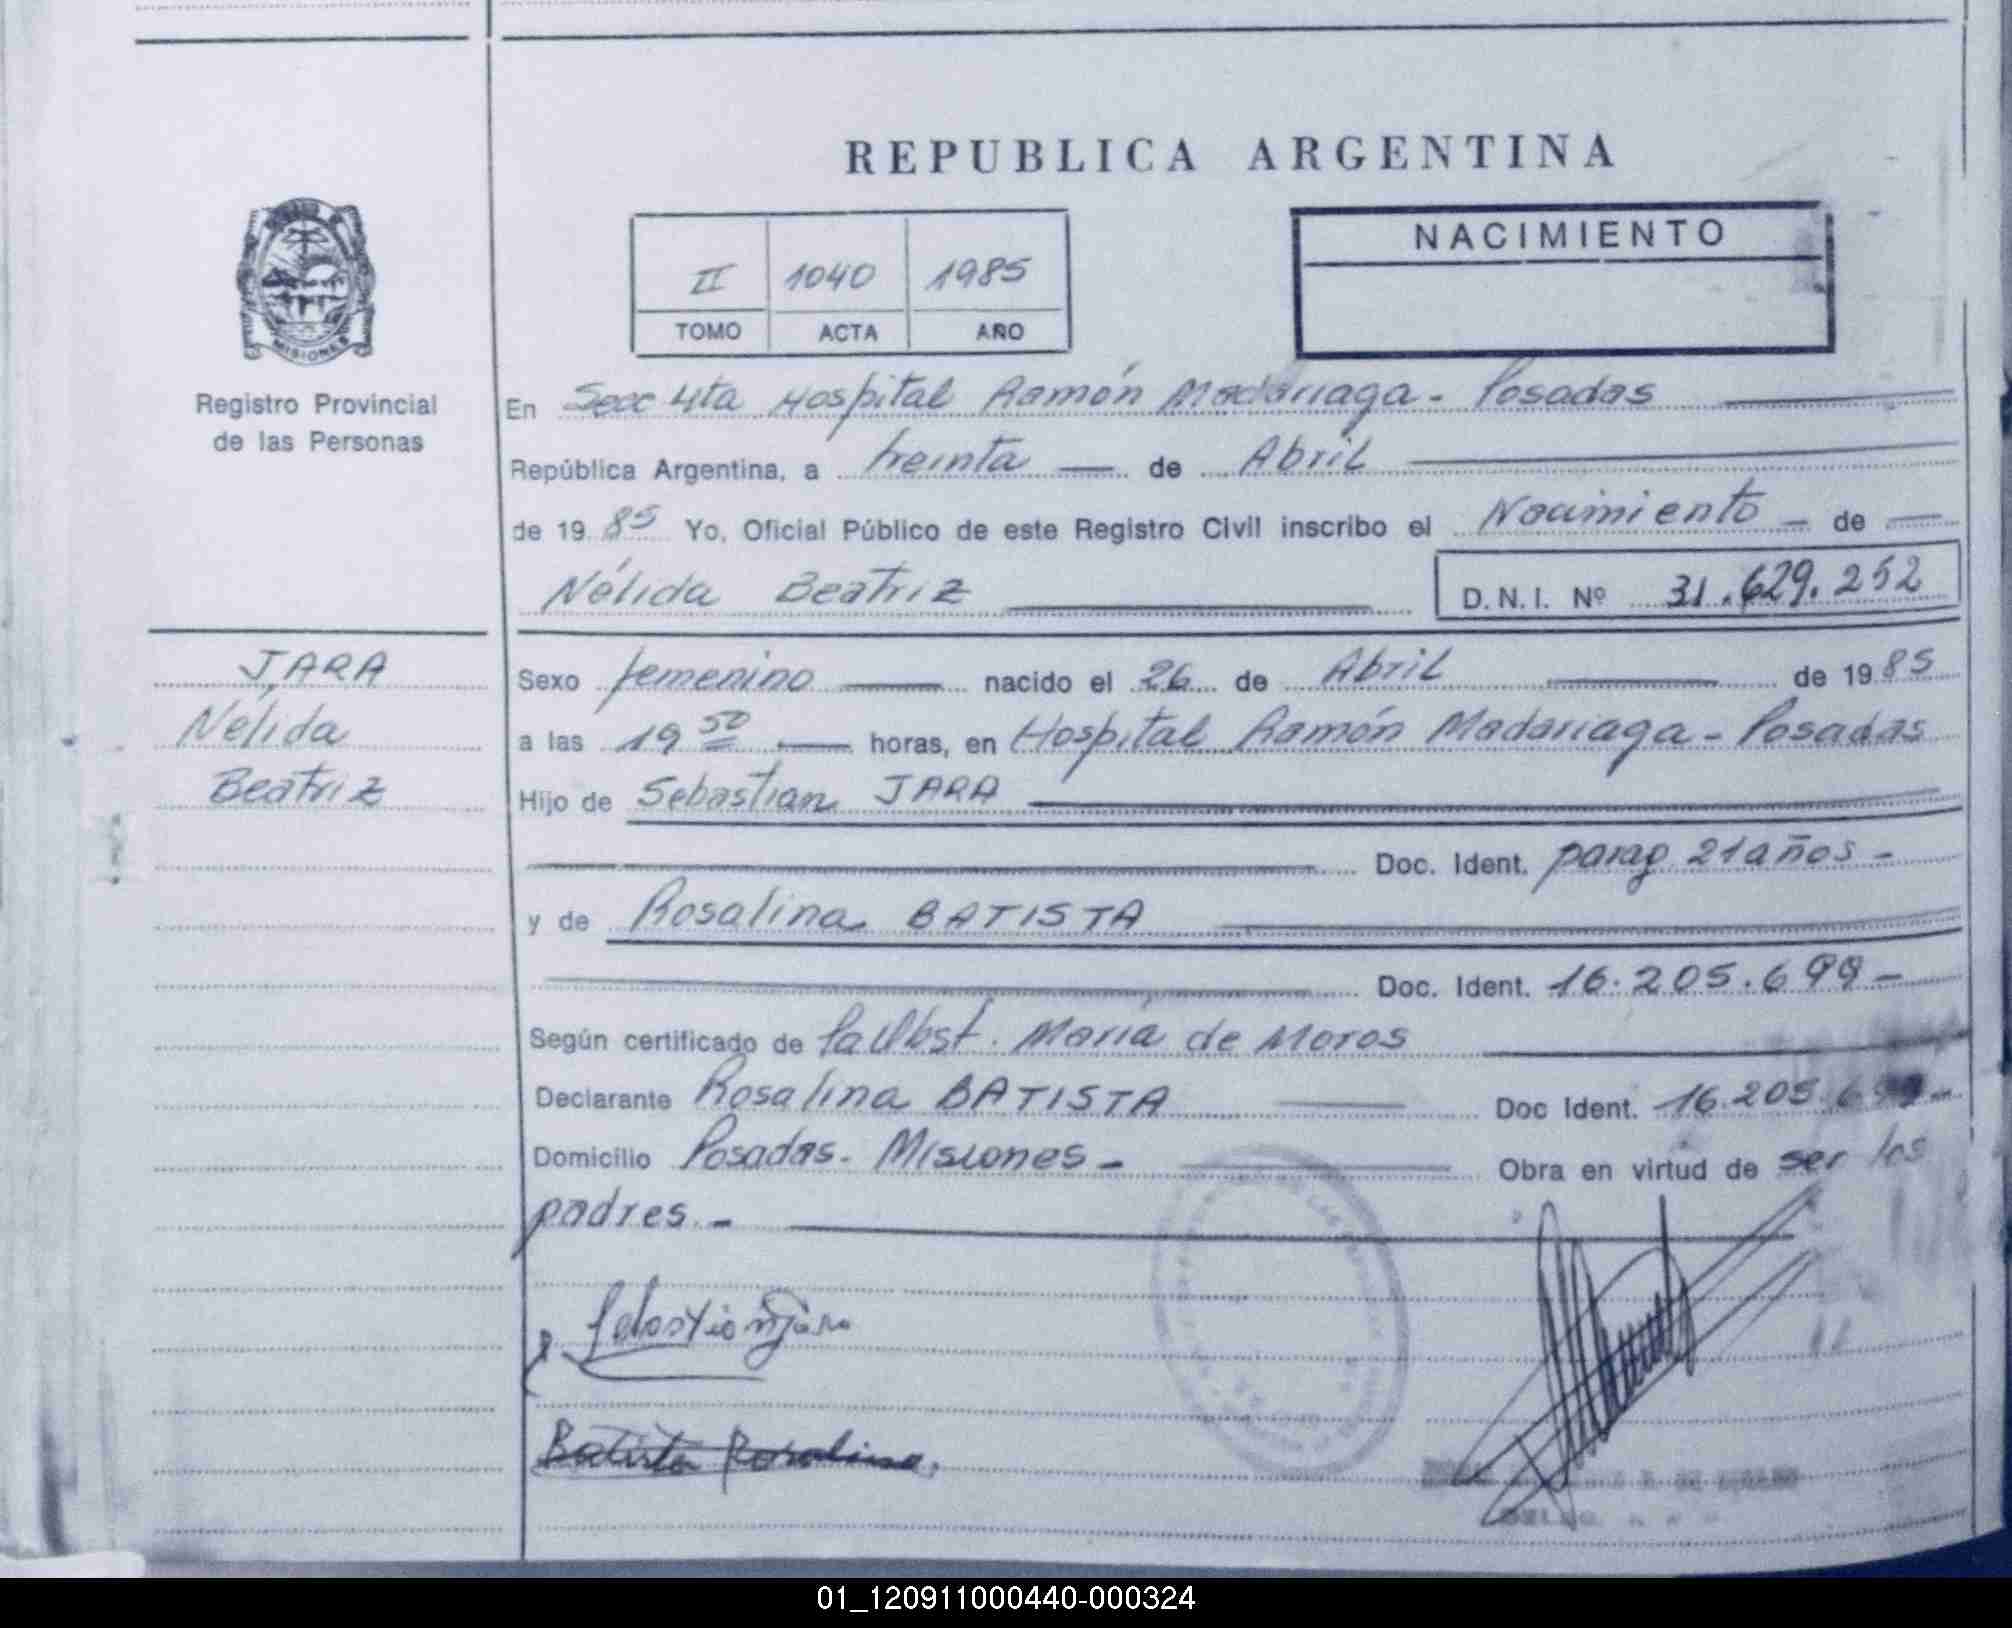 REPUBLICA ARGENTINA
NACIMIENTO
II 1040 1985
TOMO ACTA AÑO
MISIONES
Registro Provincial
de las Personas
En Secc 4ta Hospital Ramón Madariaga - Posadas
República Argentina, a treinta — de Abril
de 19 85 Yo, Oficial Público de este Registro Civil inscribo el Nacimiento - de
Nélida Beatriz D.N.I. Nº 31.629.252
JARA
Nélida
Beatriz
Sexo femenino nacido el 26 de Abril de 19 85
a las 19 50 horas, en Hospital Ramón Madariaga - Posadas
Hijo de Sebastian JARA
Doc. Ident. parag 21 años -
y de Rosalina BATISTA
Doc. Ident. 16.205.699 -
Según certificado de María de Moros
Declarante Rosalina BATISTA Doc Ident. 16.205.699 -
Domicilio Posadas - Misiones - Obra en virtud de ser los
padres. -
Batista Rosalina.
01_120911000440-000324